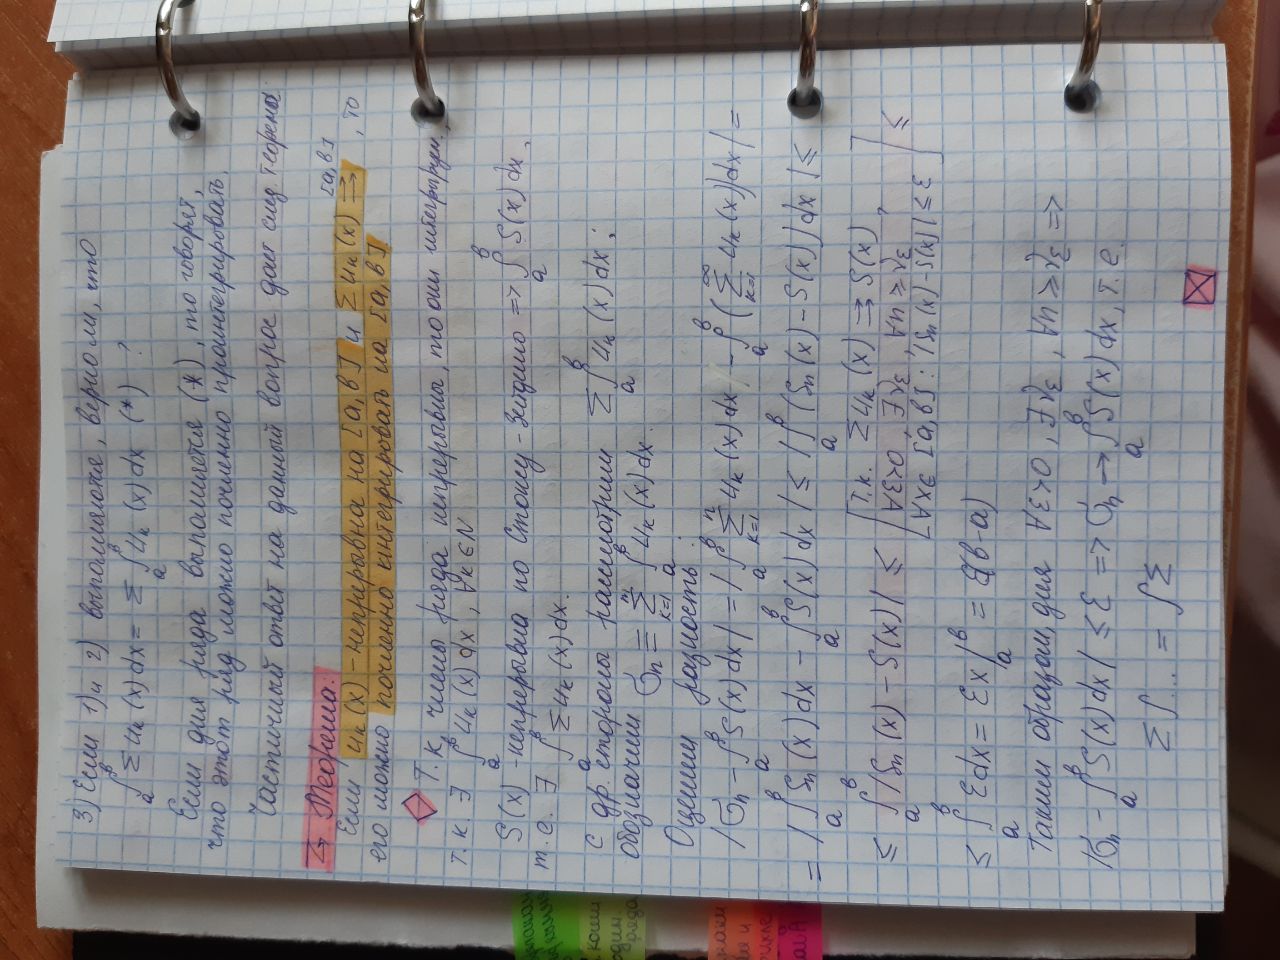 3) Если 1) и 2) выполняются, верно ли, что
∫ₐᵇ Σ uₖ(x)dx = Σ ∫ₐᵇ uₖ(x)dx (*) ?
Если для ряда выполняется (*), то говорят,
что этот ряд можно почленно проинтегрировать.
Частичный ответ на данный вопрос даст след. теорема:
Теорема:
Если uₖ(x) - непрерывна на [a,b] и Σ uₖ(x) ⇉ [a,b], то
его можно почленно интегрировать на [a,b].
Т.к. члены ряда непрерывны, то они интегрируем,
т.к. ∃ ∫ₐᵇ uₖ(x)dx, ∀k∈N
S(x) - непрерывна по Стоксу-Зейделю => ∫ₐᵇ S(x)dx,
т.е. ∃ ∫ₐᵇ Σ uₖ(x)dx.
С др. стороны рассмотрим Σ ∫ₐᵇ uₖ(x)dx;
обозначим σₙ ≡ Σₖ₌₁ⁿ ∫ₐᵇ uₖ(x)dx.
Оценим разность:
|σₙ - ∫ₐᵇ S(x)dx| = |∫ₐᵇ Σₖ₌₁ⁿ uₖ(x)dx - ∫ₐᵇ (Σₖ₌₁^∞ uₖ(x))dx| =
= |∫ₐᵇ Sₙ(x)dx - ∫ₐᵇ S(x)dx| ≤ |∫ₐᵇ (Sₙ(x) - S(x))dx| ≤
≤ ∫ₐᵇ |Sₙ(x) - S(x)| ≤ [т.к. Σ uₖ(x) ⇉ S(x),
∀ε>0, ∃γε, ∀n≥γε
∀x∈[a,b]: |Sₙ(x)-S(x)|≤ε] ≤
≤ ∫ₐᵇ εdx = εx|ₐᵇ = ε(b-a)
Таким образом, для ∀ε>0, ∃γε, ∀n≥γε =>
|σₙ - ∫ₐᵇ S(x)dx| ≤ ε => σₙ → ∫ₐᵇ S(x)dx, т.е.
Σ∫... = ∫Σ